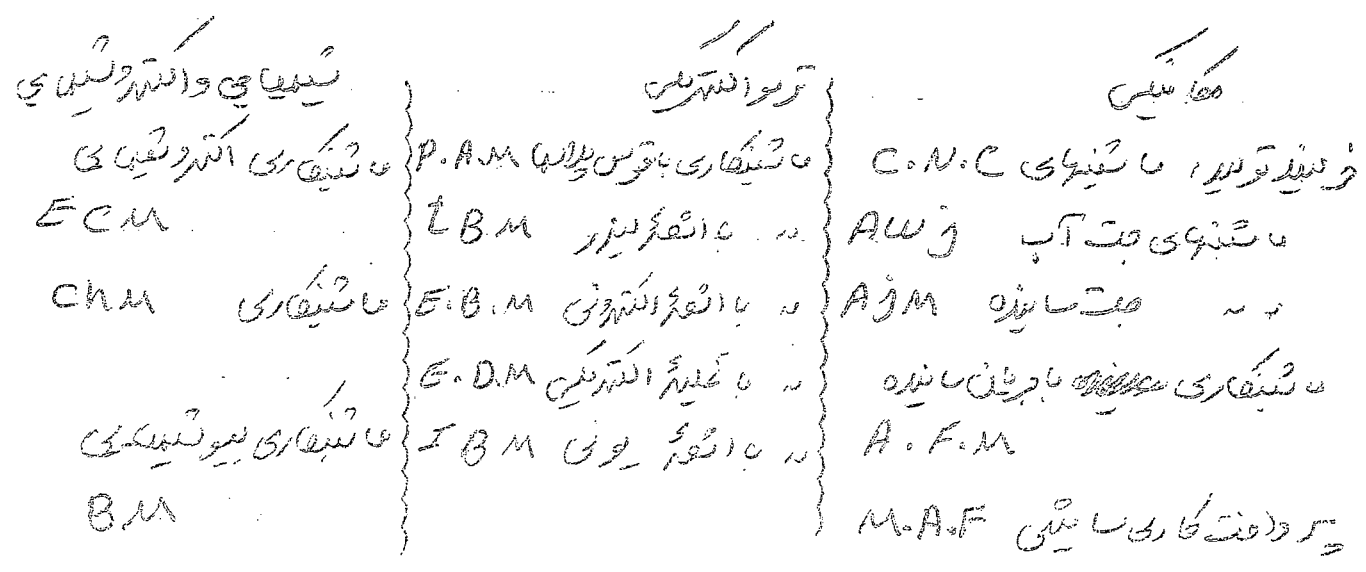 مکانیکی
فرایند تولید، ماشینهای C.N.C
ماشینهای جت آب AWJ
〃 〃 جت ساینده AJM
ماشینکاری با جریان ساینده
A.F.M
پرداخت کاری سایشی M.A.F
ترموالکتریکی
ماشینکاری با قوس پلاسما P.A.M
〃 با اشعهٔ لیزر L.B.M
〃 با اشعهٔ الکترونی E.B.M
〃 با تخلیهٔ الکتریکی E.D.M
〃 با اشعهٔ یونی I B M
شیمیایی و الکتروشیمیایی
ماشینکاری الکتروشیمیایی
ECM
ماشینکاری ChM
ماشینکاری بیوشیمیایی
B.M